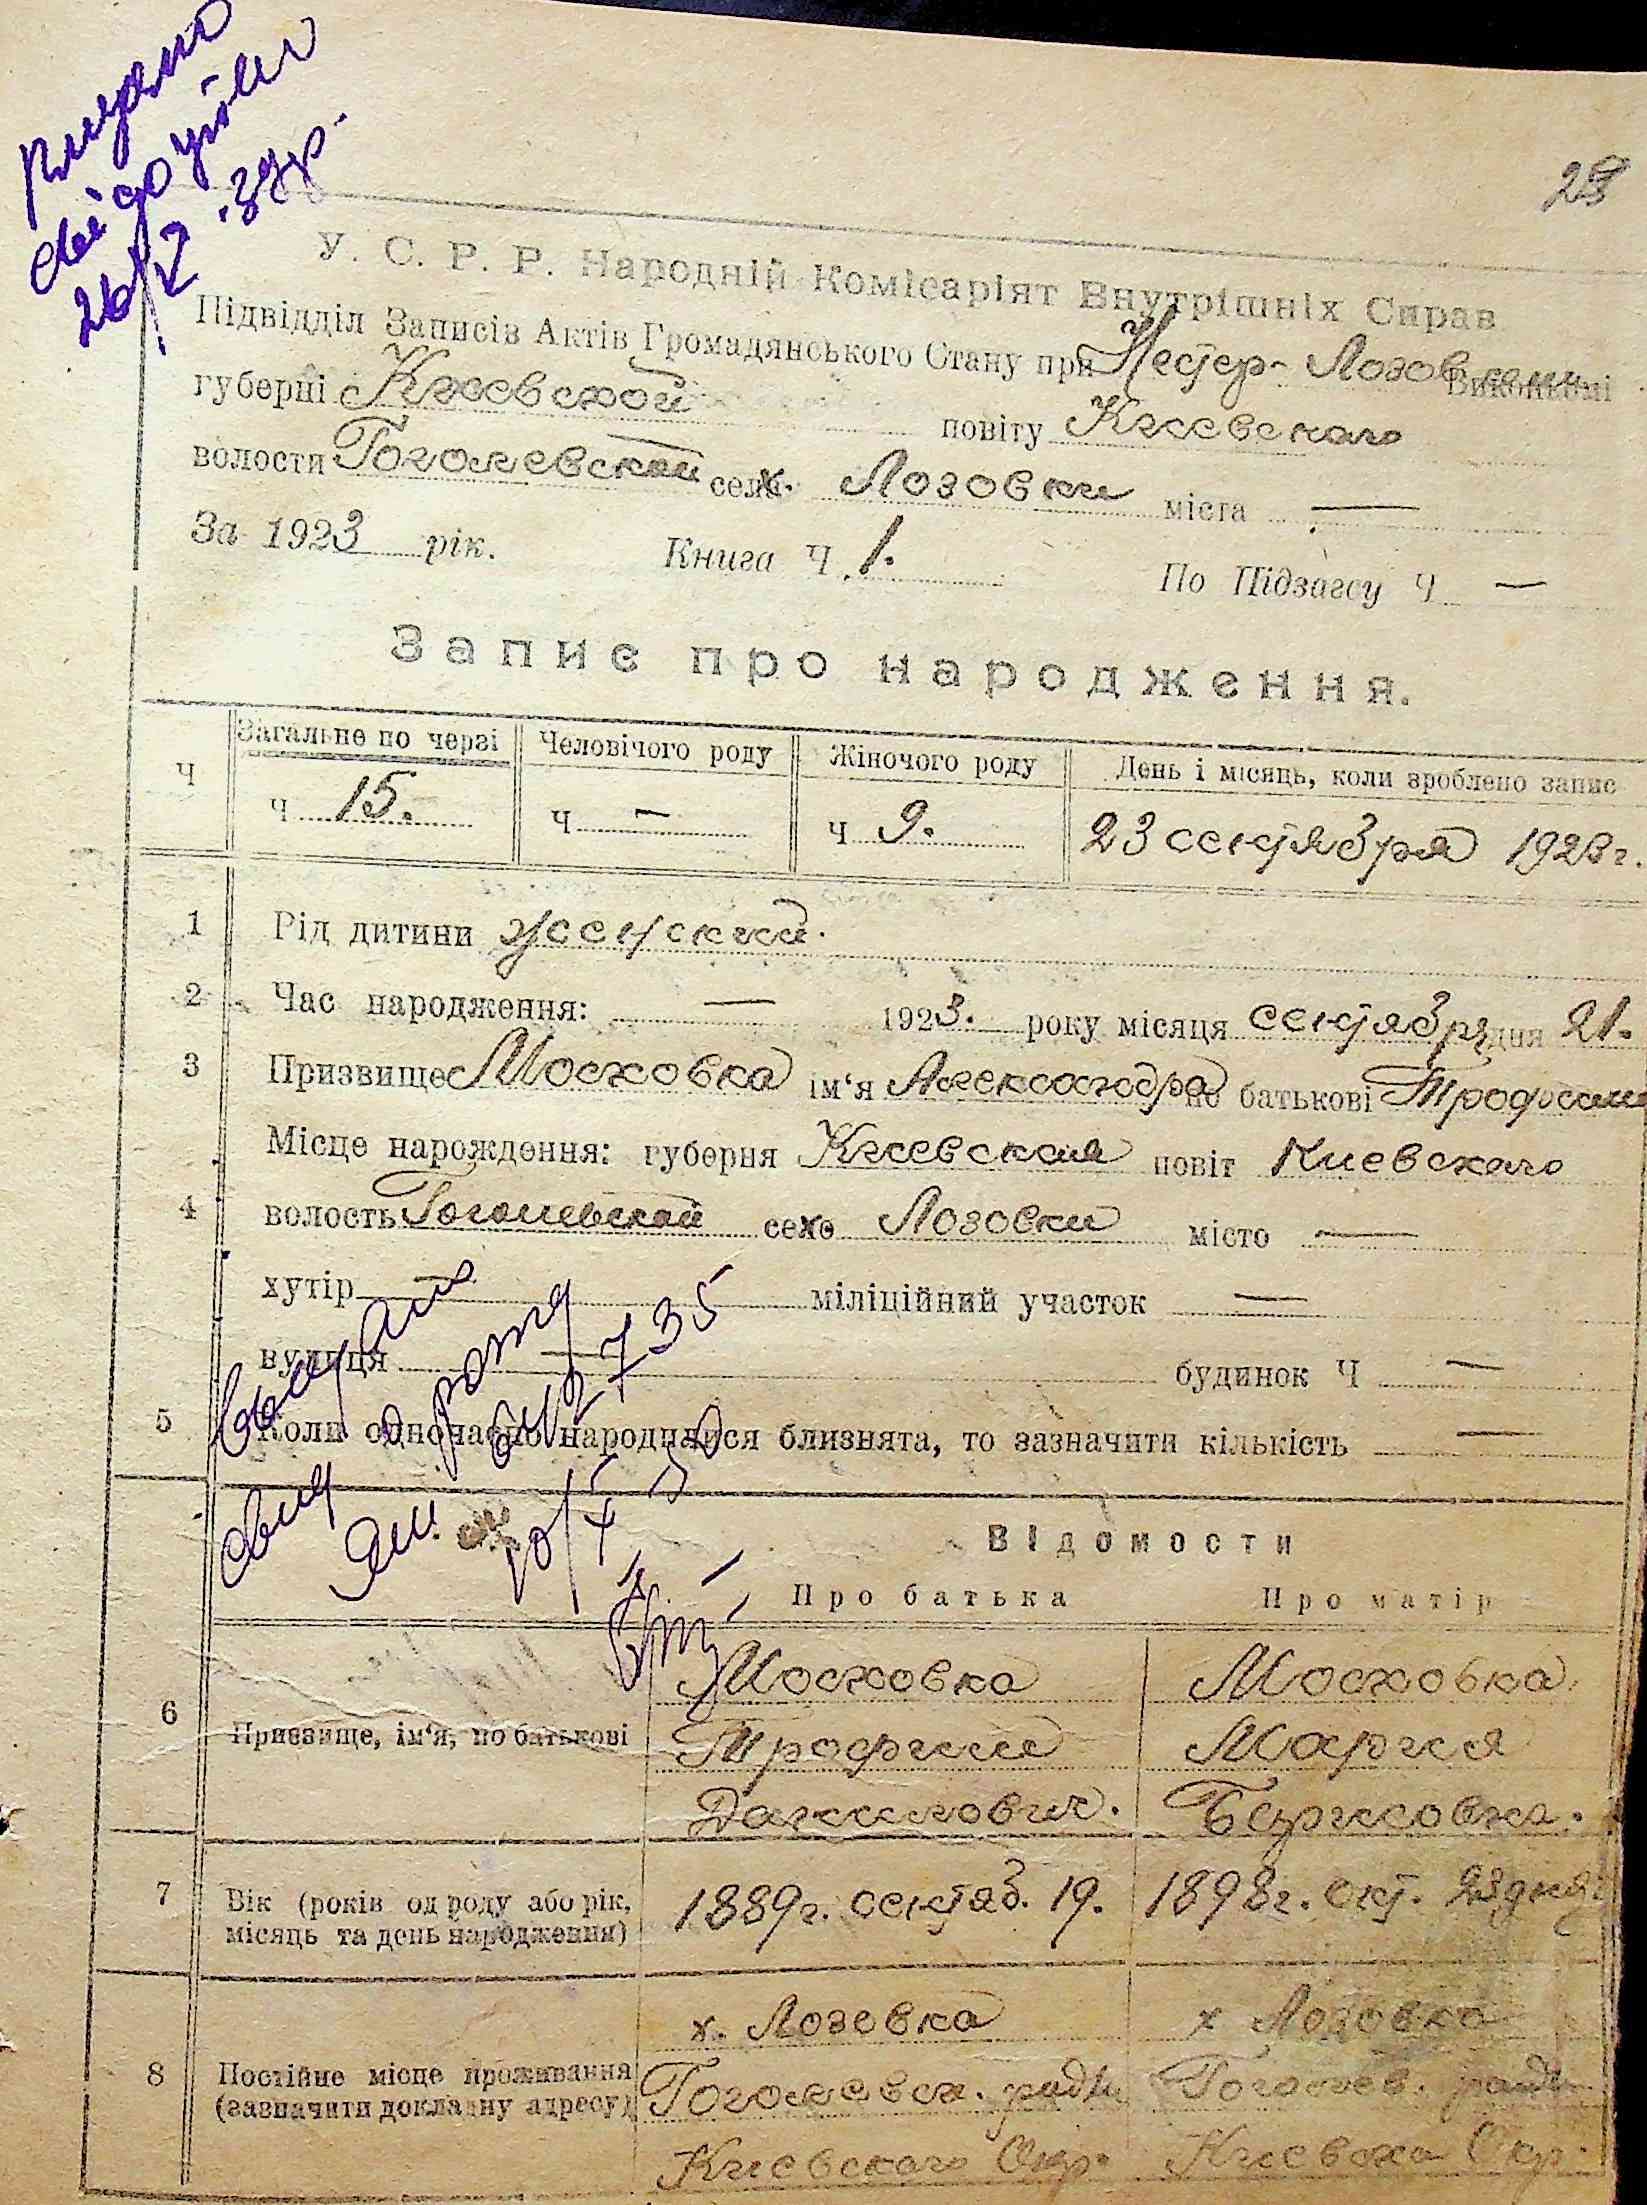 Видано
свідоцтво
26/V 39р.
28
У. С. Р. Р. Народній Комісаріят Внутрішніх Справ
Підвідділ Записів Актів Громадянського Стану при Лозов Виконкомі
губерні Киевской повіту Киевского
волости Гоголевской села х. Лозовки міста —
За 1923 рік. Книга Ч 1. По Підзагсу Ч —
Запис про народження.
Ч Загальне по черзі Человічого роду Жіночого роду День і місяць, коли зроблено запис
ч 15. ч — ч 9. 23 сентября 1923 г.
1 Рід дитини женский.
2 Час народження: — 1923. року місяця сентября дня 21.
3 Призвище Московка ім‘я Александра по батькові Трофим
Місце нарождення: губерня Киевская повіт Киевского
4 волость Гоголевской село х Лозовки місто —
хутір — міліційний участок —
вулиця — будинок Ч —
5 Коли одночасно народилися близнята, то зазначити кількість —
Выдано
10/X
Відомости
Про батька Про матір
6 Призвище, ім‘я, по батькові
Московка Московка
Трофим Мария
Данилович. Борисовна.
7 Вік (років од роду або рік, місяць та день народження) 1889 г. сентяб. 19. 1898 г. окт. 23 дня
8 Постійне місце проживання (зазначити докладну адресу)
х. Лозовка х Лозовка
Гоголевск. рады Гоголев. рады
Киевского Окр. Киевска Окр.